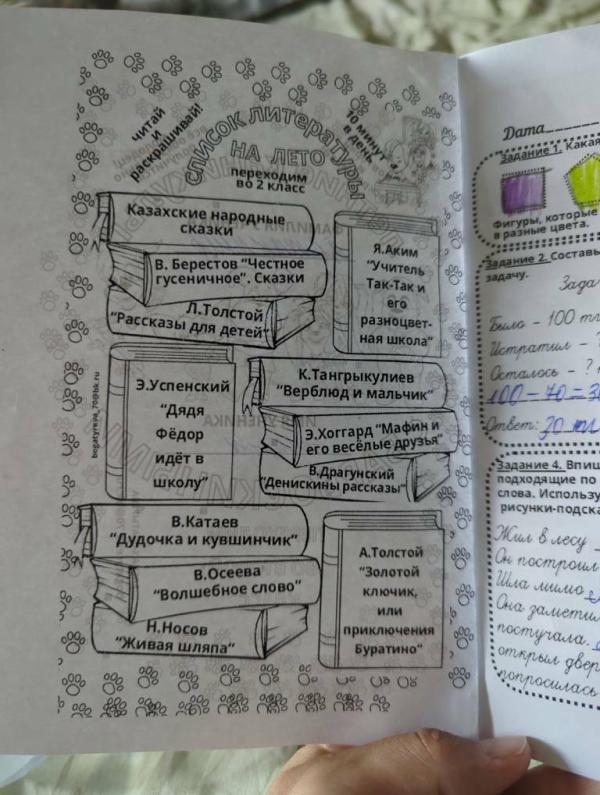 читай
и
раскрашивай!
список литературы
НА ЛЕТО
переходим
во 2 класс
10 минут
в день
Казахские народные
сказки
В. Берестов "Честное
гусеничное". Сказки
Л.Толстой
"Рассказы для детей"
Я.Аким
"Учитель
Так-Так и
его
разноцвет-
ная школа"
Э.Успенский
"Дядя
Фёдор
идёт в
школу"
К.Тангрыкулиев
"Верблюд и мальчик"
Э.Хоггард "Мафин и
его весёлые друзья"
В.Драгунский
"Денискины рассказы"
В.Катаев
"Дудочка и кувшинчик"
В.Осеева
"Волшебное слово"
Н.Носов
"Живая шляпа"
А.Толстой
"Золотой
ключик,
или
приключения
Буратино"
bogatyreva_70@bk.ru
Дата
Задание 1. Какая
Фигуры, которые
в разные цвета.
Задание 2. Составь
задачу.
Зада
Было - 100 тг
Истратил - ?
Осталось - ?
100-70=30
Ответ: 30 тг
Задание 4. Впиш
подходящие по
слова. Использу
рисунки-подска
Жил в лесу
Он построил
Шла мимо
Она заметил
постучала.
открыл двер
попросилась